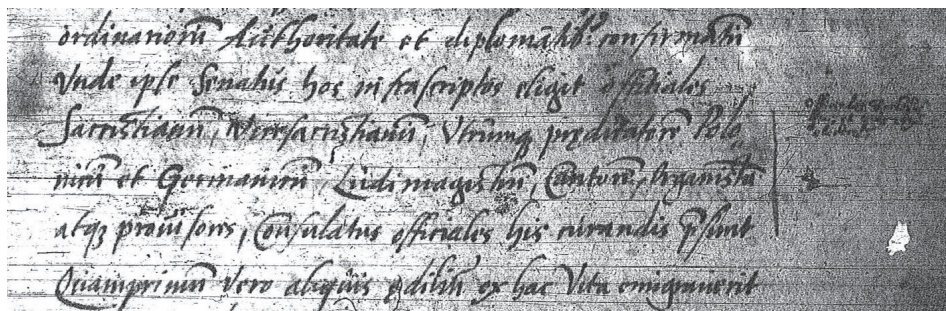 ordinariorū Authoritate et diplomatib9 confirmatū
Vnde ipse Senatus hos infrascriptos eligit officiales
Sacristianū, Vicesacristianū, Vtrumq; prędicatorē Polo
nicū et Germanicū, Ludimagistrū, Cantorē, Organistā
atq; prouisores, Consulatus officiales his curandis p̄sunt
Quamprimū vero aliquis ędiliū ex hac Vita emigrauerit